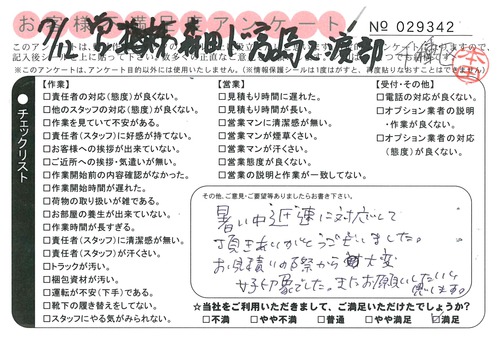 お客様満足度アンケート
№ 029342
7/12
チェックリスト
【作業】
□責任者の対応(態度)が良くない。
□他のスタッフの対応(態度)が良くない。
□作業を見ていて不安がある。
□責任者(スタッフ)に好感が持てない。
□お客様への挨拶が出来ていない。
□ご近所への挨拶・気遣いが無い。
□作業開始前の内容確認がなかった。
□作業開始時間が遅れた。
□荷物の取り扱いが雑である。
□お部屋の養生が出来ていない。
□作業時間が長すぎる。
□責任者(スタッフ)に清潔感が無い。
□責任者(スタッフ)が汗くさい。
□トラックが汚い。
□梱包資材が汚い。
□運転が不安(下手)である。
□靴下の履き替えをしてない。
□スタッフにやる気がみられない。
【営業】
□見積もり時間に遅れた。
□見積もり時間が長い。
□営業マンに清潔感が無い。
□営業マンが煙草くさい。
□営業マンが汗くさい。
□営業態度が良くない。
□営業の説明と作業が一致してない。
【受付・その他】
□電話の対応が良くない。
□オプション業者の説明
・作業が良くない。
□オプション業者の対応
(態度)が良くない。
その他、ご意見・ご要望等ありましたらお書き下さい。
暑い中迅速に対応して
頂きありがとうございました。
お見積りの際から大変
好印象でした。またお願いしたいと
思います。
★当社をご利用いただきまして、ご満足いただけたでしょうか?
□不満 □やや不満 □普通 □やや満足 ☑満足